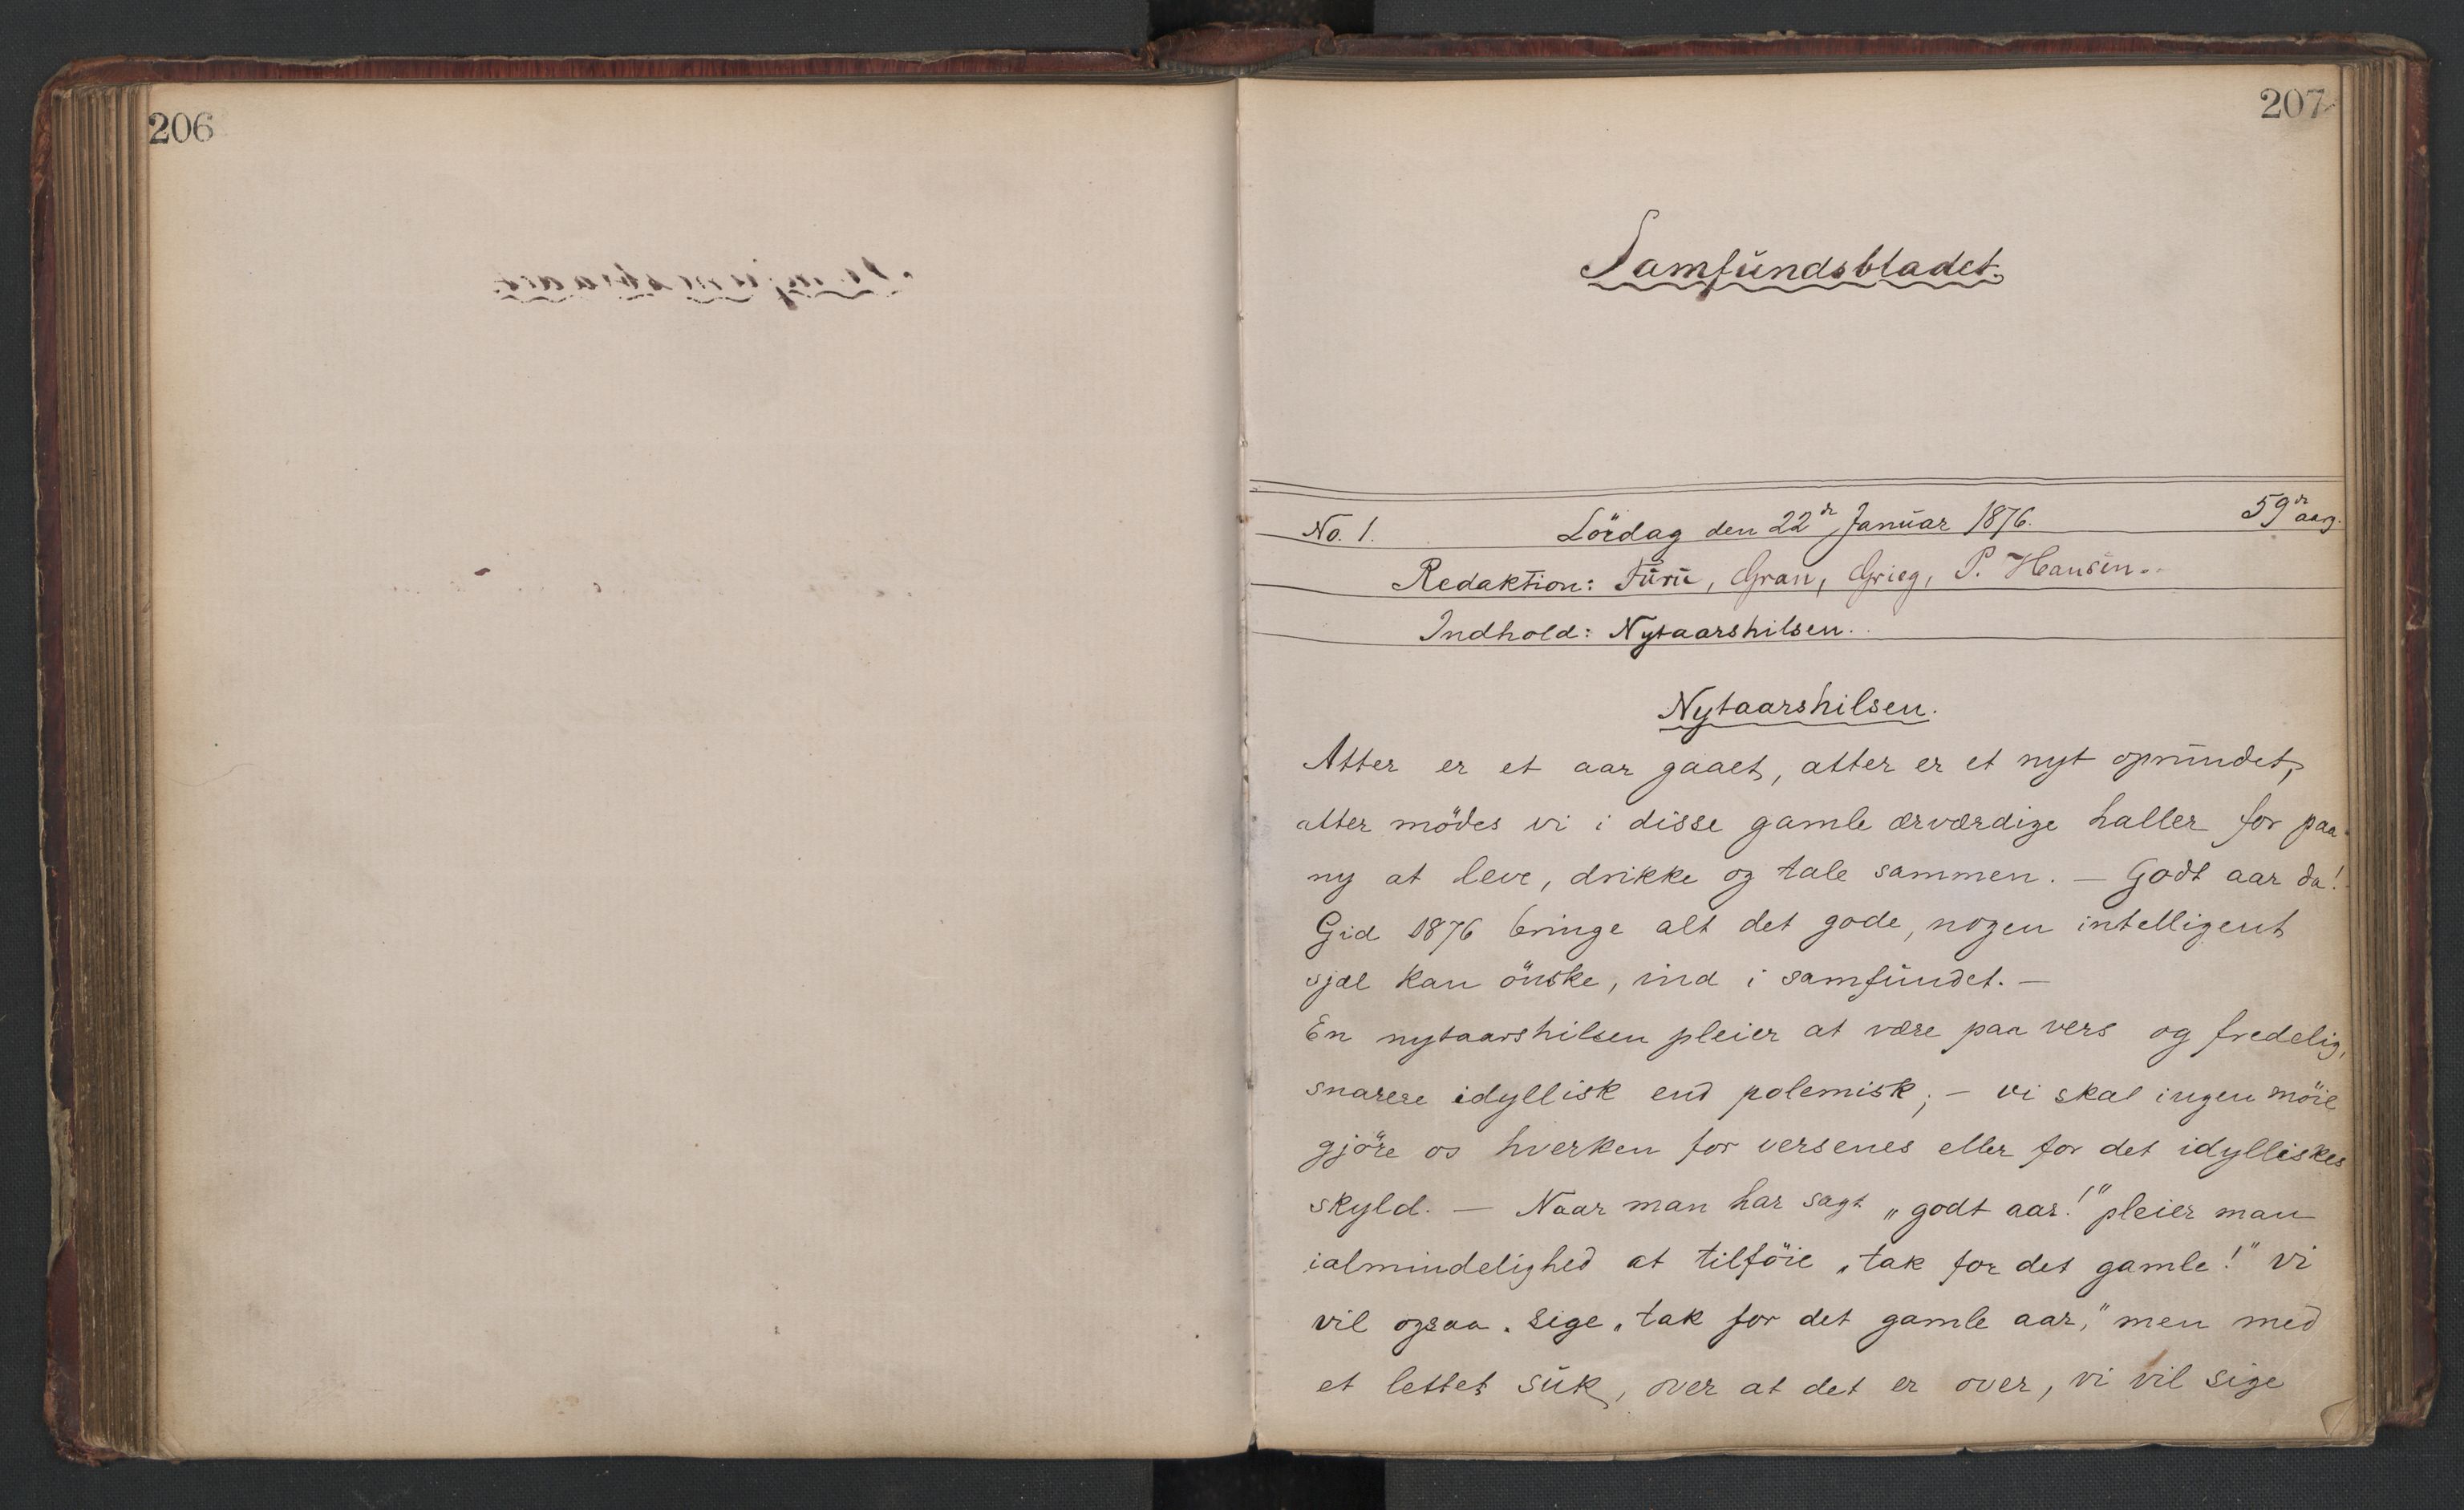 206
207
Samfundsbladet.
No. 1. Lördag den 22de Januar 1876. 59de aarg.
Redaktion: Furu, Gran, Grieg, P. Hansen.
Indhold: Nytaarshilsen.
Nytaarshilsen.
Atter er et aar gaaet, atter er et nyt oprundet,
atter mödes vi i disse gamle ærværdige haller for paa
ny at leve, drikke og tale sammen. — Godt aar da!
Gid 1876 bringe alt det gode, nogen intelligent
sjæl kan önske, ind i samfundet. —
En nytaarshilsen pleier at være paa vers og fredelig,
snarere idyllisk end polemisk; — vi skal ingen möie
gjöre os hverken for versenes eller for det idylliskes
skyld. — Naar man har sagt „godt aar!" pleier man
ialmindelighed at tilföie „tak for det gamle!" vi
vil ogsaa sige „tak for det gamle aar," men med
et lettet suk, over at det er over, vi vil sige